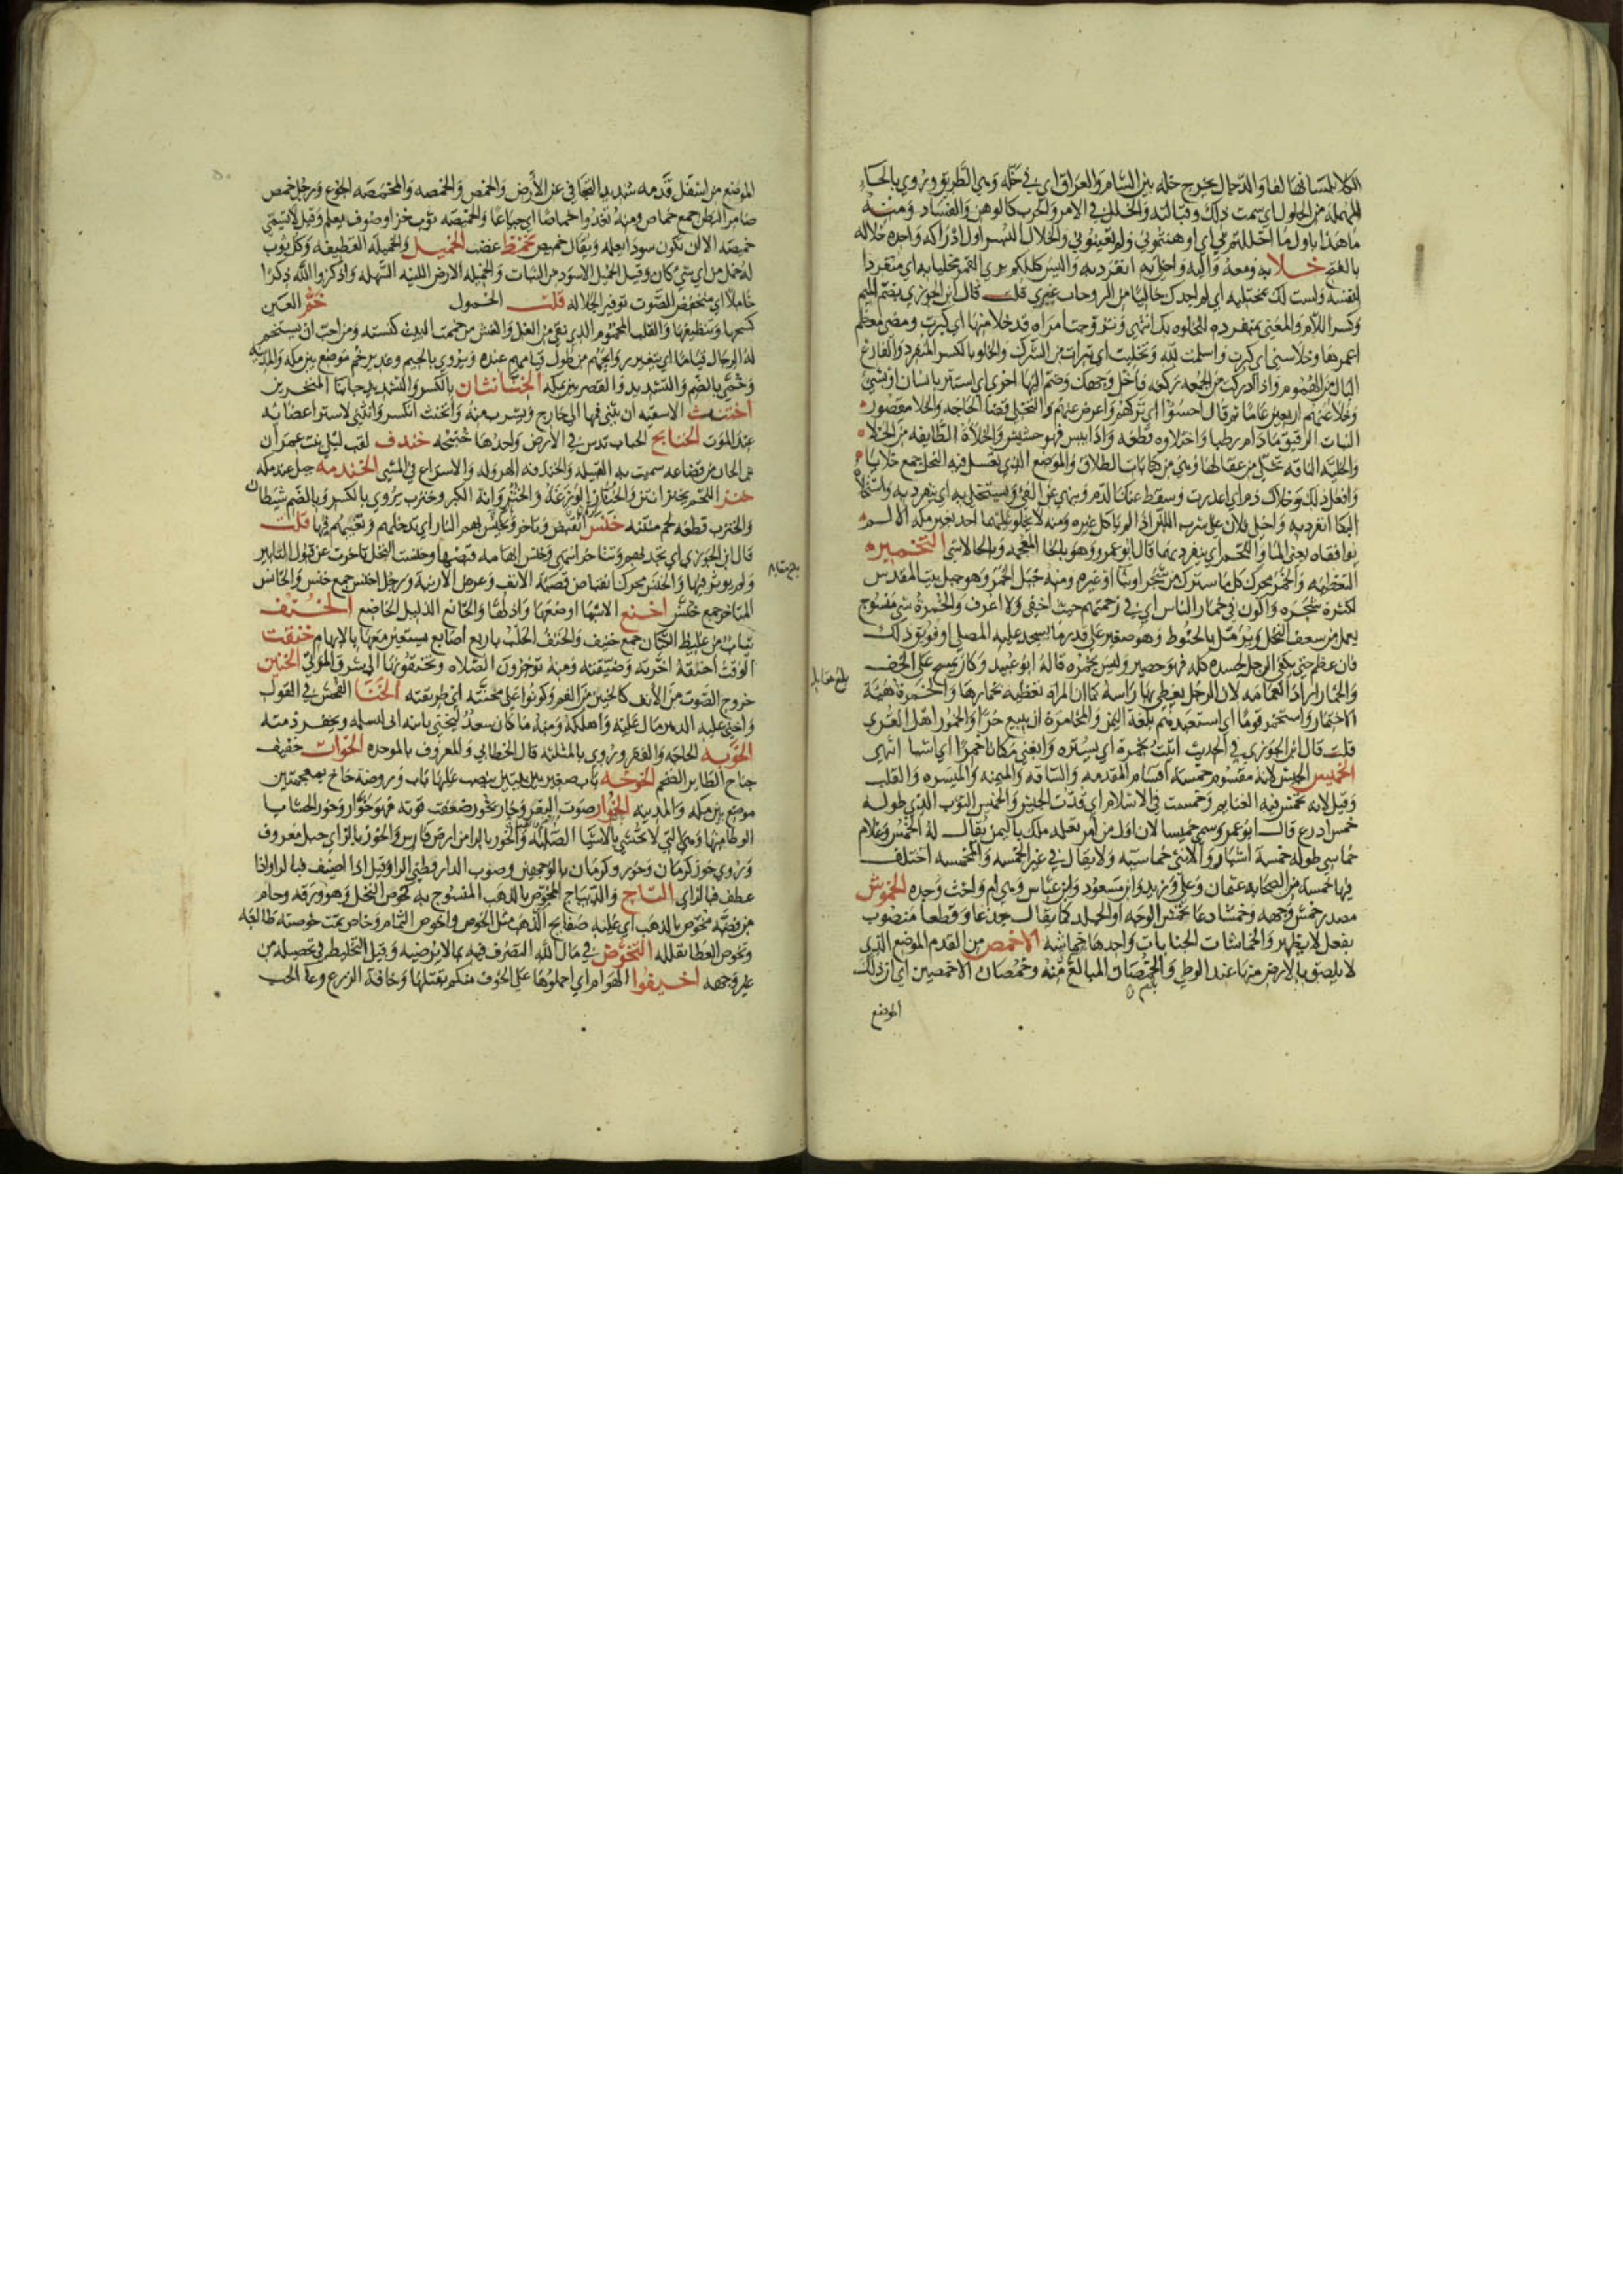 الكلا لمسانها لفا والدجال يخرج خلة بين الشام والعراق اي في خلة وهي الطريق وروي بالحاء
المهملة من الحلول اي سمت ذلك وقبالته والخلل في الامر والحرب كالوهن والفساد ومنه
ما هذا باول ما اخللتم بي اي اوهنتموني ولم تعينوني والخلال البسر اول ادراكه واحده خلاله
بالفتح خلا به ومعه واليه واخلي به انفرد به واليس كلكم يري القمر مخليا به اي منفردا
لنفسه ولست لك بمخليه اي لم اجدك خاليا من الزوجات غيري قلت قال ابن الجوزي بضم الميم
وكسر اللام والمعنى بمتفرده للخلوه بك انتهى وتزوجت امراه قد خلا منها اي كبرت ومضى معظم
عمرها وخلا سني اي كبرت واسلمت لله وتخليت اي تبرات من الشرك والخلو بالكسر المنفرد والفارغ
البال من الهموم واذا ادركت من الجمعه ركعه فاخل وجهك وضم اليها اخرى اي استتر بانسان او بشيء
وخلا عنهم اربعين عاما ثم قال اخسؤا اي تركهم واعرض عنهم والتخلي قضا الحاجه والخلا مقصور
النبات الرقيق ما دام رطبا واختلاوه قطعه واذا يبس فهو حشيش والخلاة الطايفه من الخلا
والخليه الناقه تخلى من عقالها وهي من كنايات الطلاق والموضع الذي يعسل فيه النحل جمع خلايا
وافعل ذلك وخلاك ذم اي اعذرت وسقط عنك الذم ويستخلي به اي ينفرد به واستخلاه
البكا انفرد به واخلى فلان على شرب اللبن اذا لم ياكل غيره ومنه لا يخلو عليهما احد بغير مكه الا لم
يوافقاه يعنى الما واللحم اي ينفرد بهما قال ابو عمرو وهو بالخا المعجمه وبالحا لا شي التخمير
التغطيه والخمر محرك كل ما سترك من شجر او بنا او غيره ومنه جبل الخمر وهو جبل بيت المقدس
لكثرة شجره واكون في خمار الناس اي في زحمتهم حيث اخفى ولا اعرف والخمرة شي منسوج
يعمل من سعف النخل ويرمل بالخيوط وهو صغير على قدر ما يسجد عليه المصلي او فويق ذلك
فان عظم حتى يكفي الرجل لجسده كله فهو حصير وليس بخمره قاله ابو عبيد وكان يمسح على الخف
والخمار اراد العمامه لان الرجل يغطي بها راسه كما ان المراه تغطيه بخمارها والخمرة هيئة
الاختمار واستخمر قوما اي استعبدهم بلغة اليمن والمخامرة ان يبيع حرا
قلت قال ابن الجوزي في الحديث
الخميس الجيش لانه مقسوم خمسه اقسام المقدمه والساقه والميمنه والميسره والقلب
وقيل لانه تخمس فيه الغنايم وخمست في الاسلام اي قدت الجيش والخميس الثوب الذي طوله
خمس اذرع قال ابو عمرو سمي خميسا لان اول من امر بعمله ملك باليمن يقال له الخمس وغلام
خماسي طوله خمسة اشبار والانثى خماسيه ولا يقال في غير الخمسه والمخمسه اختلف
فيها خمسه من الصحابه عثمان وعلي وزيد وابن مسعود وابن عباس وهي ام واخت وجد الخموش
مصدر خمش وجهه وخمشا دعا بخمش الوجه او الجلد كما يقال جدعا وقطعا منصوب
بفعل لا يظهر والخماشات الجنايات واحدها خماشه الاخمص من القدم الموضع الذي
لا يلصق بالارض منها عند الوطي والخمصان المبالغ منه وخمصان الاخمصين اي ان ذلك
الموضع
الموضع من اسفل قدمه شديد التجافي عن الارض والخمص والخمصه والمخمصه الجوع ورجل خمص
ضامر البطن جمع خماص ومنه تغدوا خماصا اي جياعا والخميصه ثوب خز او صوف معلم وقيل لا تسمى
خميصه الا ان تكون سودا معلمه خمط غضب الخميل والخميله القطيفه وكل ثوب
له خمل من اي شي كان وقيل الخميل الاسود من الثياب والخميله الارض اللينه السهله واذكروا الله ذكرا
خاملا اي منخفض الصوت توقير الجلاله قلت الخمول خم العين
كسحها وتنظيفها والقلب المخموم الذي نقي من الغل والغش من خممت البيت كنسته ومن احب ان يستخم
له الرجال قياما اي تتغير روايحهم من طول قيامهم عنده ويروى بالجيم وغدير خم موضع بين مكه والمدينه
وخمى بالضم والتشديد والقصر بير بمكه الخنابتان بالكسر والتشديد جانبا المنخرين
اختناث الاسقيه ان يثني فمها الى خارج ويشرب منه وانخنث انكسر وانثنى لاسترخا اعضايه
عند الموت الخنابج خندف لقب ليلى بنت عمران
بن الحاف بن قضاعه سميت به القبيله والخندفه الهروله والاسراع في المشي الخندمه جبل عند مكه
خنز اللحم يخنز انتن وخنزب يروي بالكسر وبالضم شيطان
والخنزب قطعه لحم منتنه خنس انقبض وتاخر وتخنس بهم النار اي تدخلهم وتغيبهم فيها قلت
قال ابن الجوزي اي تجذبهم وتتاخر انتهى وخنس ابهامه قبضها وخنست النخل تاخرت عن قبول التابير
ولم يوثر فيها والخنس محرك انقباض قصبة الانف وعرض الارنبة ورجل اخنس جمع خنس والخانس
المتاخر جمع خنس اخنع الاسما اوضعها واذلها والخانع الذليل الخاضع الخنف
ثياب من غليظ الكتان جمع خنيف والخنف الحلب باربع اصابع يستعين معها بالابهام خنقت
الوقت اخنقه اخرته وضيقته ومنه توخرون الصلاه وتخنقونها الى شرق الموتى الخنين
خروج الصوت من الانف كالحنين من الفم وكونوا على مخنته اي طريقته الخنا الفحش في القول
واخنى عليه الدهر مال عليه واهلكه ومنه ما كان سعد ليخني بابنه اي يسلمه ويخفر ذمته
الخوبه الحاجه والفقر وروي بالمثلثه قال الخطابي والمعروف بالموحده الخوات خفيف
جناح الطاير الضخم الخوخه باب صغير بين بيتين ينصب عليها باب وروضة خاخ بمعجمتين
موضع بين مكه والمدينه الخوار صوت البقر وخار يخور ضعفت قوته فهو خوار وخور الحشايا
الوطا منها وهي التي لا تحشى بالاشيا الصلبه والخور بالرا من ارض فارس والخوز بالزاي جبل معروف
وروي خوز كرمان وخوز وكرمان بالوجهين وصوب الدارقطني الرا وقيل اذا اضيف فبالرا واذا
عطف فبالزاي التاج والديباج المخوص بالذهب المنسوج به كخوص النخل وهو ورقه وجام
من فضه مخوص بالذهب اي عليه صفايح الذهب مثل الخوص واخوص الثمام
وتخوص العطا تقلله التخوض في مال الله التصرف فيه بما لا يرضيه وقيل التخليط في تحصيله من
غير وجهه اخيفوا الهوام اي احملوها على الخوف منكم بقتلها وخافة الزرع وعا الحب